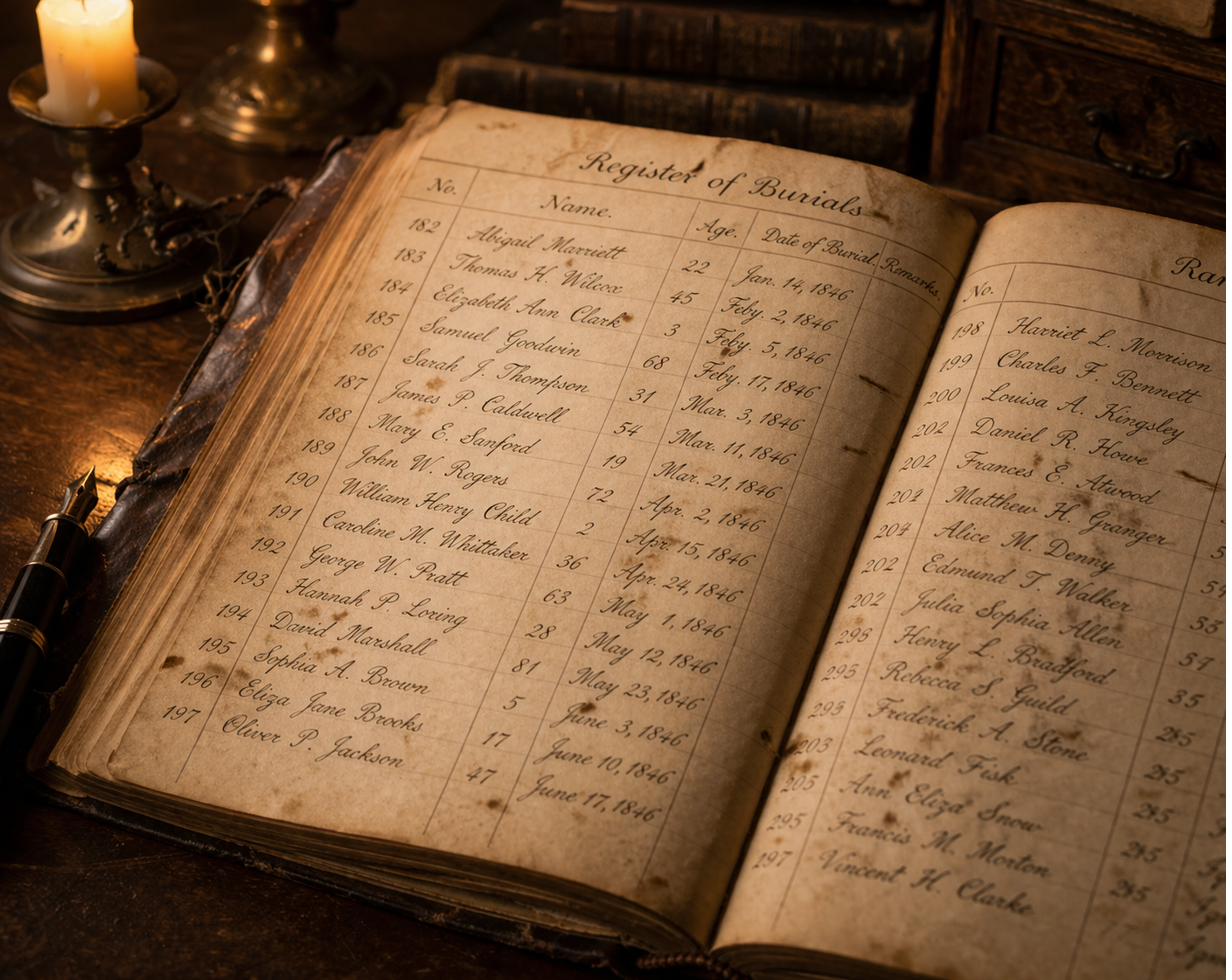 Register of Burials
No. Name. Age. Date of Burial. Remarks.
182 Abigail Marriett 22 Jan. 14, 1846
183 Thomas H. Wilcox 45 Feby. 2, 1846
184 Elizabeth Ann Clark 3 Feby. 5, 1846
185 Samuel Goodwin 68 Feby. 17, 1846
186 Sarah J. Thompson 31 Mar. 3, 1846
187 James P. Caldwell 54 Mar. 11, 1846
188 Mary E. Sanford 19 Mar. 21, 1846
189 John W. Rogers 72 Apr. 2, 1846
190 William Henry Child 2 Apr. 15, 1846
191 Caroline M. Whittaker 36 Apr. 24, 1846
192 George W. Pratt 63 May 1, 1846
193 Hannah P. Loring 28 May 12, 1846
194 David Marshall 81 May 23, 1846
195 Sophia A. Brown 5 June 3, 1846
196 Eliza Jane Brooks 17 June 10, 1846
197 Oliver P. Jackson 47 June 17, 1846
No.
198 Harriet L. Morrison
199 Charles F. Bennett
200 Louisa A. Kingsley
202 Daniel R. Howe
202 Frances E. Atwood
Matthew H. Granger
204 Alice M. Denny
202 Edmund T. Walker
202 Julia Sophia Allen 57
Henry L. Bradford 35
295 Rebecca S. Guild
293 Frederick A. Stone
203 Leonard Fisk
205 Ann Eliza Snow
295 Francis M. Morton
197 Vincent H. Clarke